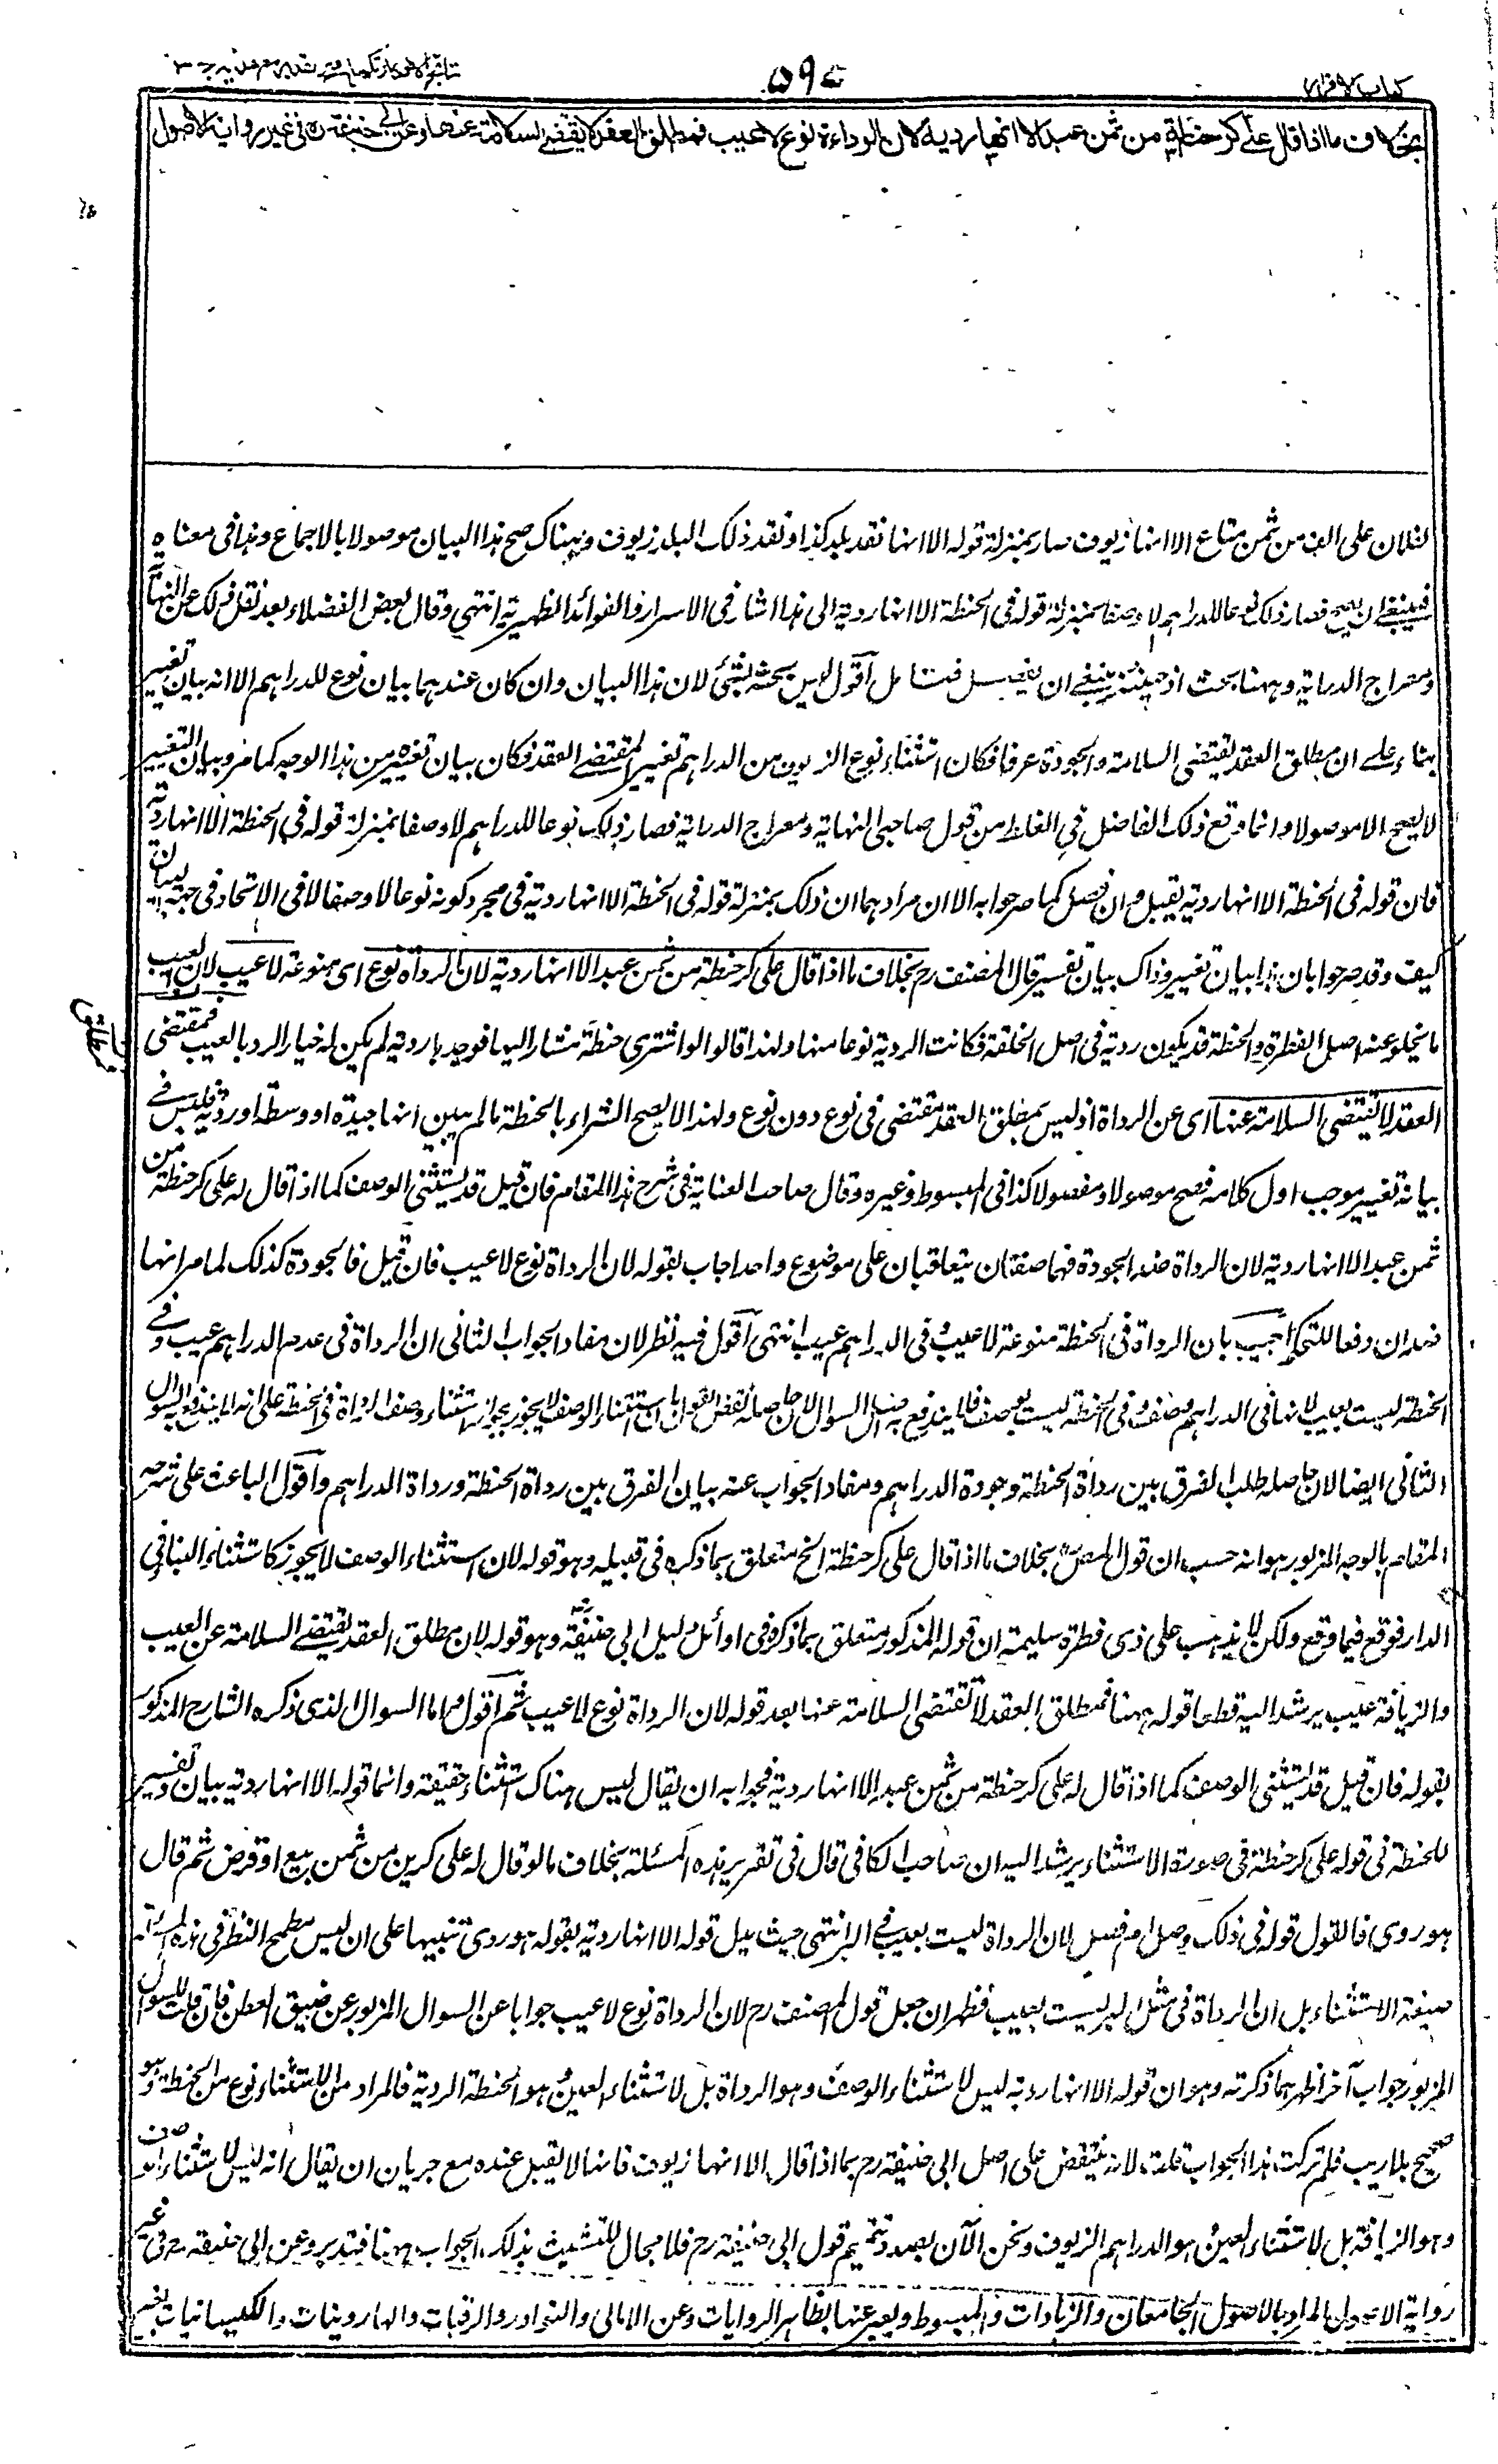 كتاب الاقرار
۵۹۷
بخلاف ما اذا قال علي كر حنطة من ثمن عبد الا انها ردية لان الرداءة نوع لا عيب فمطلق العقد لا يقتضي السلامة عنها وعن ابي حنيفة رح في غير رواية الاصول
لفلان على الف من ثمن متاع الا انها زيوف صار بمنزلة قوله الا انها نقد بلد كذا ونقد ذلك البلد زيوف وهناك صح هذا البيان موصولا بالاجماع وهذا فى معناه
فينبغى ان يصح فصار ذلك نوعا للدراهم لا وصفا بمنزلة قوله فى الحنطة الا انها ردية الى هذا اشار فى الاسرار والفوائد الظهيرية انتهى وقال بعض الفضلاء بعد نقل ذلك عن النهاية
ومعراج الدراية وههنا بحث اذ حينئذ ينبغى ان يفصل فتامل اقول ليس بحثه بشئ لان هذا البيان وان كان عندهما بيان نوع للدراهم الا انه بيان تغيير
بناء على ان مطلق العقد يقتضى السلامة والجودة عرفا فكان استثناء نوع الزيوف من الدراهم تغييرا لمقتضى العقد فكان بيان تغيير من هذا الوجه كما مر وبيان التغيير
لا يصح الا موصولا وانما وقع ذلك الفاضل فى الغلط من قول صاحبى النهاية ومعراج الدراية فصار ذلك نوعا للدراهم لا وصفا بمنزلة قوله فى الحنطة الا انها ردية
فان قوله فى الحنطة الا انها ردية يقبل وان فصل كما صرحوا به الا ان مرادهما ان ذلك بمنزلة قوله فى الحنطة الا انها ردية فى مجرد كونه نوعا لا وصفا لا فى الاتحاد فى جهة البيان
كيف وقد صرحوا بان هذا بيان تغيير وذاك بيان تفسير قال المصنف رح بخلاف ما اذا قال على كر حنطة من ثمن عبد الا انها ردية لان الرداة نوع اى منوعة لا عيب لان العيب
ما يخلو عنه اصل الفطرة والحنطة قد يكون ردية فى اصل الخلقة فكانت الردية نوعا منها ولهذا قالوا لو اشترى حنطة مشارا اليها فوجدها ردية لم يكن له خيار الرد بالعيب فمقتضى
مطلق
العقد لا تقتضى السلامة عنها اى عن الرداة اذ ليس بمطلق العقد مقتضى فى نوع دون نوع ولهذا لا يصح الشراء بالحنطة ما لم يبين انها جيدة او وسطة او ردية فليس فى
بيانه تغيير موجب اول كلامه فصح موصولا ومفصولا كذا فى المبسوط وغيره وقال صاحب العناية فى شرح هذا المقام فان قيل قد يستثنى الوصف كما اذا قال له على كر حنطة من
ثمن عبد الا انها ردية لان الرداة ضد الجودة فهما صفتان يتعاقبان على موضوع واحد اجاب بقوله لان الرداة نوع لا عيب فان قيل فالجودة كذلك لما مر انها
ضدان دفعا للتحكم اجيب بان الرداة فى الحنطة منوعة لا عيب وفى الدراهم عيب انتهى اقول فيه نظر لان مفاد الجواب الثانى ان الرداة فى عدم الدراهم عيب وفى
الحنطة ليست بعيب لانها فى الدراهم وصف وفى الحنطة ليست بوصف فلا يندفع به السوال الاول لان حاصله نقض القول بان استثناء الوصف لا يجوز بجواز استثناء وصف الرداة فى الحنطة على انه لا يندفع به السوال
الثانى ايضا لان حاصله طلب الفرق بين رداة الحنطة وجودة الدراهم ومفاد الجواب عنه بيان الفرق بين رداة الحنطة ورداة الدراهم واقول الباعث على شرحه
المقام بالوجه المزبور هو انه حسب ان قول المصنف بخلاف ما اذا قال على كر حنطة الخ متعلق بما ذكره فى قبيله وهو قوله لان استثناء الوصف لا يجوز كاستثناء البناء فى
الدار فوقع فيما وقع ولكن لا يذهب على ذى فطرة سليمة ان قوله المذكور متعلق بما ذكره فى اوائل دليل ابى حنيفة رح وهو قوله لان مطلق العقد يقتضى السلامة عن العيب
والزيافة عيب يرشد اليه قطعا قوله ههنا فمطلق العقد لا تقتضى السلامة عنها بعد قوله لان الرداة نوع لا عيب ثم اقول اما السوال الذى ذكره الشارح المذكور
بقوله فان قيل قد استثنى الوصف كما اذا قال له على كر حنطة من ثمن عبد الا انها ردية فجوابه ان يقال ليس هناك استثناء حقيقة وانما قوله الا انها ردية بيان وتفسير
للحنطة فى قوله على كر حنطة فى صورة الاستثناء يرشد اليه ان صاحب الكافى قال فى تقرير هذه المسئلة بخلاف ما لو قال له على كر بر من ثمن بيع او قرض ثم قال
هو ردى فالقول قوله فى ذلك وصل ام فصل لان الرداة ليست بعيب فى البر انتهى حيث بدل قوله الا انها ردية بقوله هو ردى تنبيها على ان ليس مطمح النظر فى هذه المسئلة
صيغة الاستثناء بل ان الرداة فى مثل البر ليست بعيب فظهر ان جعل قول المصنف رح لان الرداة نوع لا عيب جوابا عن السوال المزبور عن ضيق العطن فان قلت للسوال
المزبور جواب آخر اظهر مما ذكرته وهو ان قوله الا انها ردية ليس لاستثناء الوصف وهو الرداة بل لاستثناء العين وهو الحنطة الردية فالمراد من الاستثناء نوع من الحنطة وهو
صحيح بلا ريب فلم تركت هذا الجواب قلت لانه ينتقض على اصل ابى حنيفة رح بما اذا قال الا انها زيوف فانها لا يقبل عنده مع جريان ان يقال انه ليس لاستثناء الوصف
وهو الزيافة بل لاستثناء العين وهو الدراهم الزيوف ونحن الآن بصدد تتميم قول ابى حنيفة رح فلا مجال للتشبث بذلك الجواب ههنا فتدبر وعن ابى حنيفة رح فى غير
رواية الاصول المراد بالاصول الجامعان والزيادات والمبسوط ويعبر عنها بظاهر الروايات وعن الامالى والنوادر والرقيات والهارونيات والكيسانيات بغير